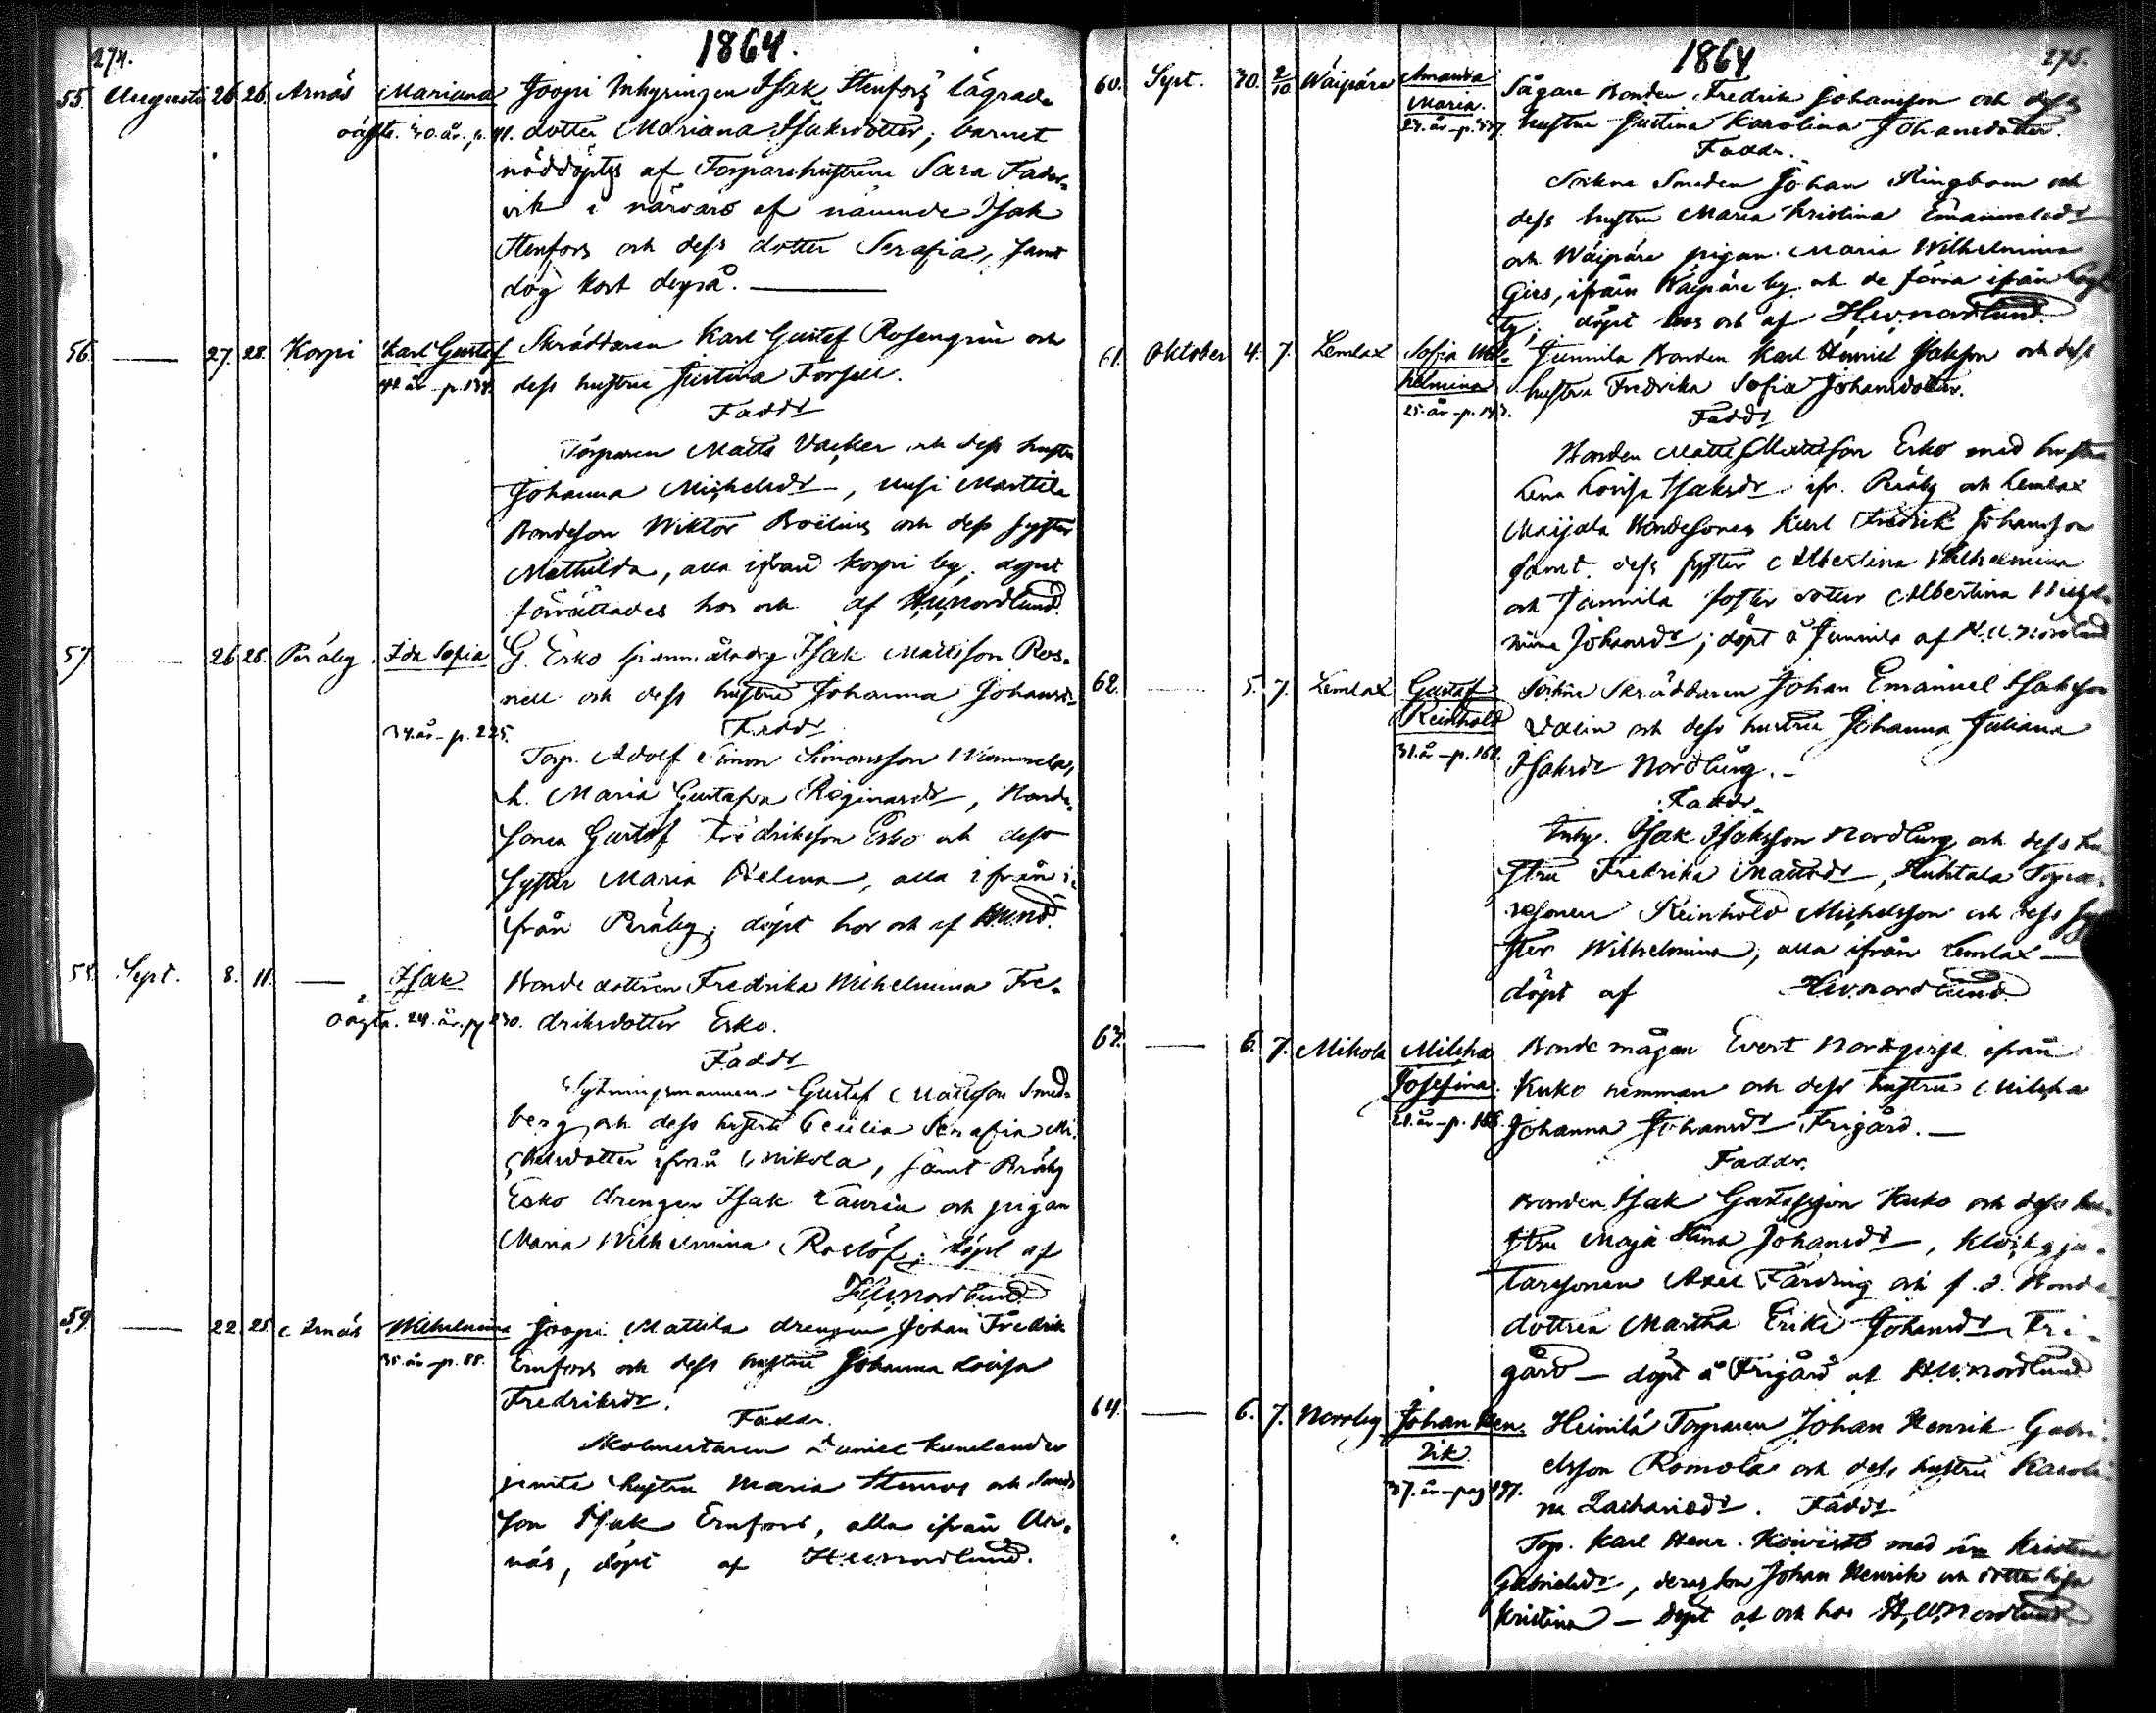 274.
1864.
55. Augusti 26. 26. Arnäs Mariana Joopi Inhysingen Isak Stenfors' lägrade
oägta. 30. år. p. 91. dotter Mariana Isaksdotter; barnet
nöddöptes af Torparehustrun Sara
vik i närvaro af nämnde Isak
Stenfors och dess dotter Serafia, samt
dog kort derpå.
56. — 27. 28. Korpi Karl Gustef Skräddaren Karl Gustef Rosengrén och
42 år - p. 134. dess hustru Justina Forsell.
Faddr
Torparen Matts Vacker och dess hustru
Johanna Michelsdr, Uusi Marttila
Bondeson Wiktor Boëlius och dess syster
Mathilda, alla ifrån Korpi by. dopet
förrättades hos och af H.W. Nordlund.
57 — 26. 28. Peräby Ida Sofia G. Esko Isak Mattsson Ros-
nell och dess hustru Johanna Johansdr
34. år - p. 225. Faddr
Torp. Adolf Simon Simonsson
h. Maria Gustafva Reginasdr, Bonde-
sonen Gustaf Fredriksson Esko och dess
syster Maria Helena, alla ifrån i-
från Peräby; döpt hos och af H.W.Nd.
58. Sept. 8. 11. — Isak Bonde dottren Fredrika Wilhelmina Fre-
oägta. 24. år. pg 230. driksdotter Esko.
Faddr
Sytningsmannen Gustef Mattsson Smed-
berg och dess hustru Cecilia Serafia Mi-
chelsdotter ifrån Mikola, samt Peräby
Esko drengen Isak Laurén och pigan
Maria Wilhelmina Roslöf; döpt af
H.W. Nordlund
59. — 22. 25. Arnäs Wilhelmina Joopi Mattila drengen Johan Fredrik
35. år - p. 88. Ernfors och dess hustru Johanna Lovisa
Fredriksdr.
Faddr.
Skolmästaren Daniel Kumlander
jemte hustru Maria och
son Isak Ernfors, alla ifrån Ar-
näs, döpt af H.W. Nordlund.
1864
275.
60. Sept. 30. 2/10 Wäipäre Amanda Sågare Bonden Fredrik Johansson och dess
Maria. hustru Justina Karolina Johansdotter.
Faddr.
Sockne Smeden Johan Ringbom och
dess hustru Maria Kristina Emanuelsdr
och Wäipäre pigan Maria Wilhelmina
Girs, ifrån Wäipäre by och de förra ifrån
by; döpt hos och af H.W. Nordlund.
61. Oktober 4. 7. Lemlax Sofia Wil- Junnila Bonden Karl Henrik Isaksson och dess
helmina hustru Fredrika Sofia Johansdotter.
25. år - p. 143. Faddr
Bonden Matts Mattsson Esko med hustru
Lena Lovisa Isaksdr ifr. Peräby och Lemlax
Maijala Bondesonen Karl Fredrik Johansson
samt dess syster Albertina Wilhelmina
och Junnila foster dotter Albertina Wilhel-
mina Johansdr; döpt å Junnila af H.W. Nordlund
62. — 5. 7. Lemlax Gustaf Sockne Skräddaren Johan Emanuel Isaksson
Reinhold Dalin och dess hustru Johanna Juliana
31. år - p. 162. Isaksdr Nordburg. -
Faddr.
Inhy. Isak Isaksson Nordburg och dess hu-
stru Fredrika Mattsdr, Huhtala Torpa-
resonen Reinhold Michelsson och dess sy-
ster Wilhelmina; alla ifrån Lemlax —
döpt af H.W. Nordlund
63. — 6. 7. Mikola Milcha Bonde mågen Evert Nordqvist ifrån
Josefina. Kuko hemman och dess hustru Milcha
21. år - p. 186. Johanna Johansdr Frigård. —
Faddr.
Bonden Isak Gustafsson Kuko och dess hu-
stru Maja Stina Johansdr, Klockgju-
taresonen Axel Färding och f. d. Bonde
dottren Martha Erika Johansdr Fri-
gård — döpt å Frigård af H.W. Nordlund
64. — 6. 7. Norrby Johan Hen- Heimilä Torparen Johan Henrik Gabri-
rik elsson Romola och dess hustru Karoli-
37. år - pag 197. na Zachariedr. Faddr
Torp. Karl Henr. Koivisto med Kristina
Gabrielsdr, deras son Johan Henrik och dotter
Kristina — döpt af och hos H.W. Nordlund